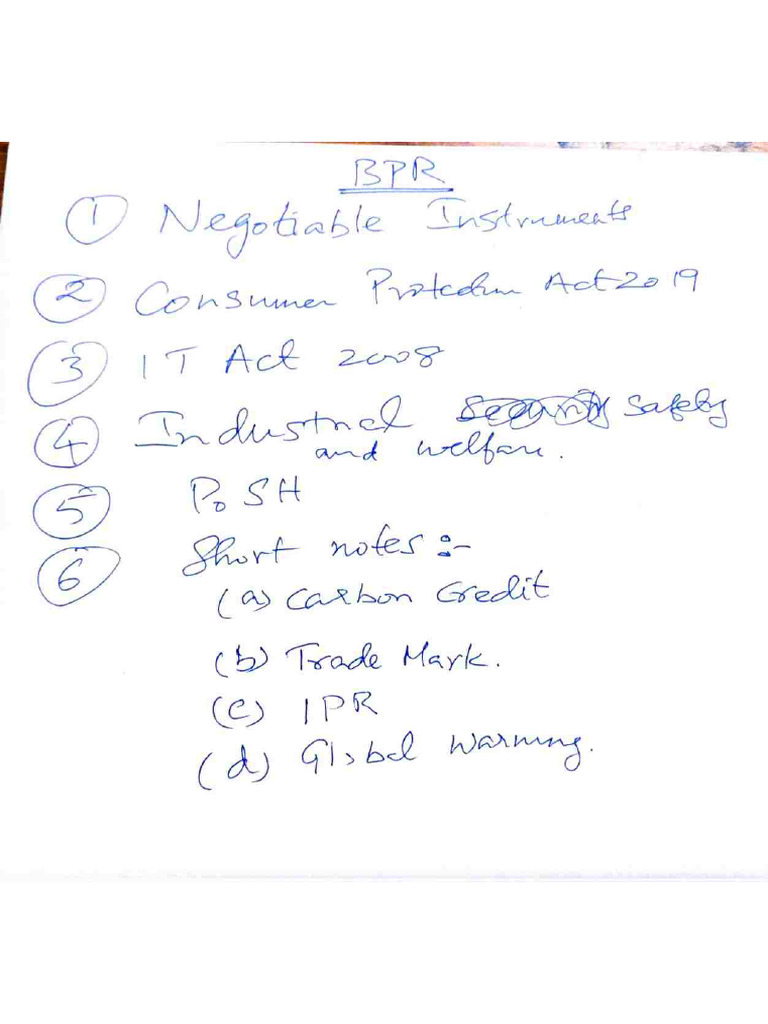 BPR
① Negotiable Instruments
② Consumer Protection Act 2019
③ IT Act 2008
④ Industrial Security Safety
and welfare.
⑤ PoSH
⑥ Short notes :-
(a) Carbon Credit
(b) Trade Mark.
(c) IPR
(d) Global Warming.